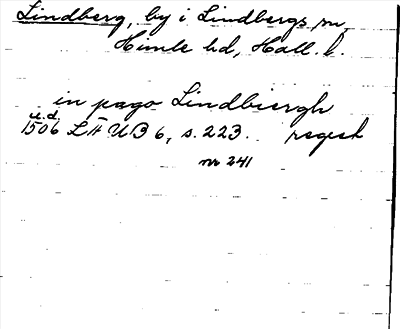 Lindberg, by i Lindbergs sn,
Himle hd, Hall. l.
in pago Lindbiergh
u.d.
1506 LÄUB 6, s. 223. regest
nr 241